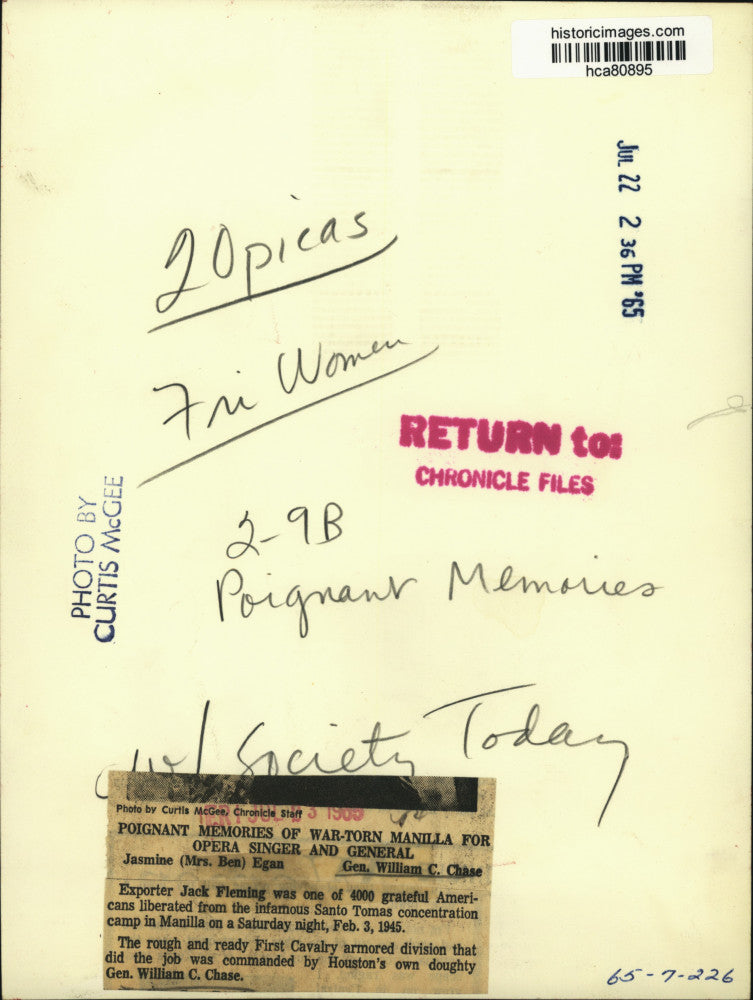 historicimages.com
hca80895
JUL 22 2 36 PM '65
20 picas
Fri Women
RETURN to:
CHRONICLE FILES
PHOTO BY
CURTIS McGEE
2-9B
Poignant Memories
w/ Society Today
Photo by Curtis McGee, Chronicle Staff
POIGNANT MEMORIES OF WAR-TORN MANILLA FOR
OPERA SINGER AND GENERAL
Jasmine (Mrs. Ben) Egan Gen. William C. Chase
Exporter Jack Fleming was one of 4000 grateful Ameri-
cans liberated from the infamous Santo Tomas concentration
camp in Manilla on a Saturday night, Feb. 3, 1945.
The rough and ready First Cavalry armored division that
did the job was commanded by Houston's own doughty
Gen. William C. Chase.
65-7-226